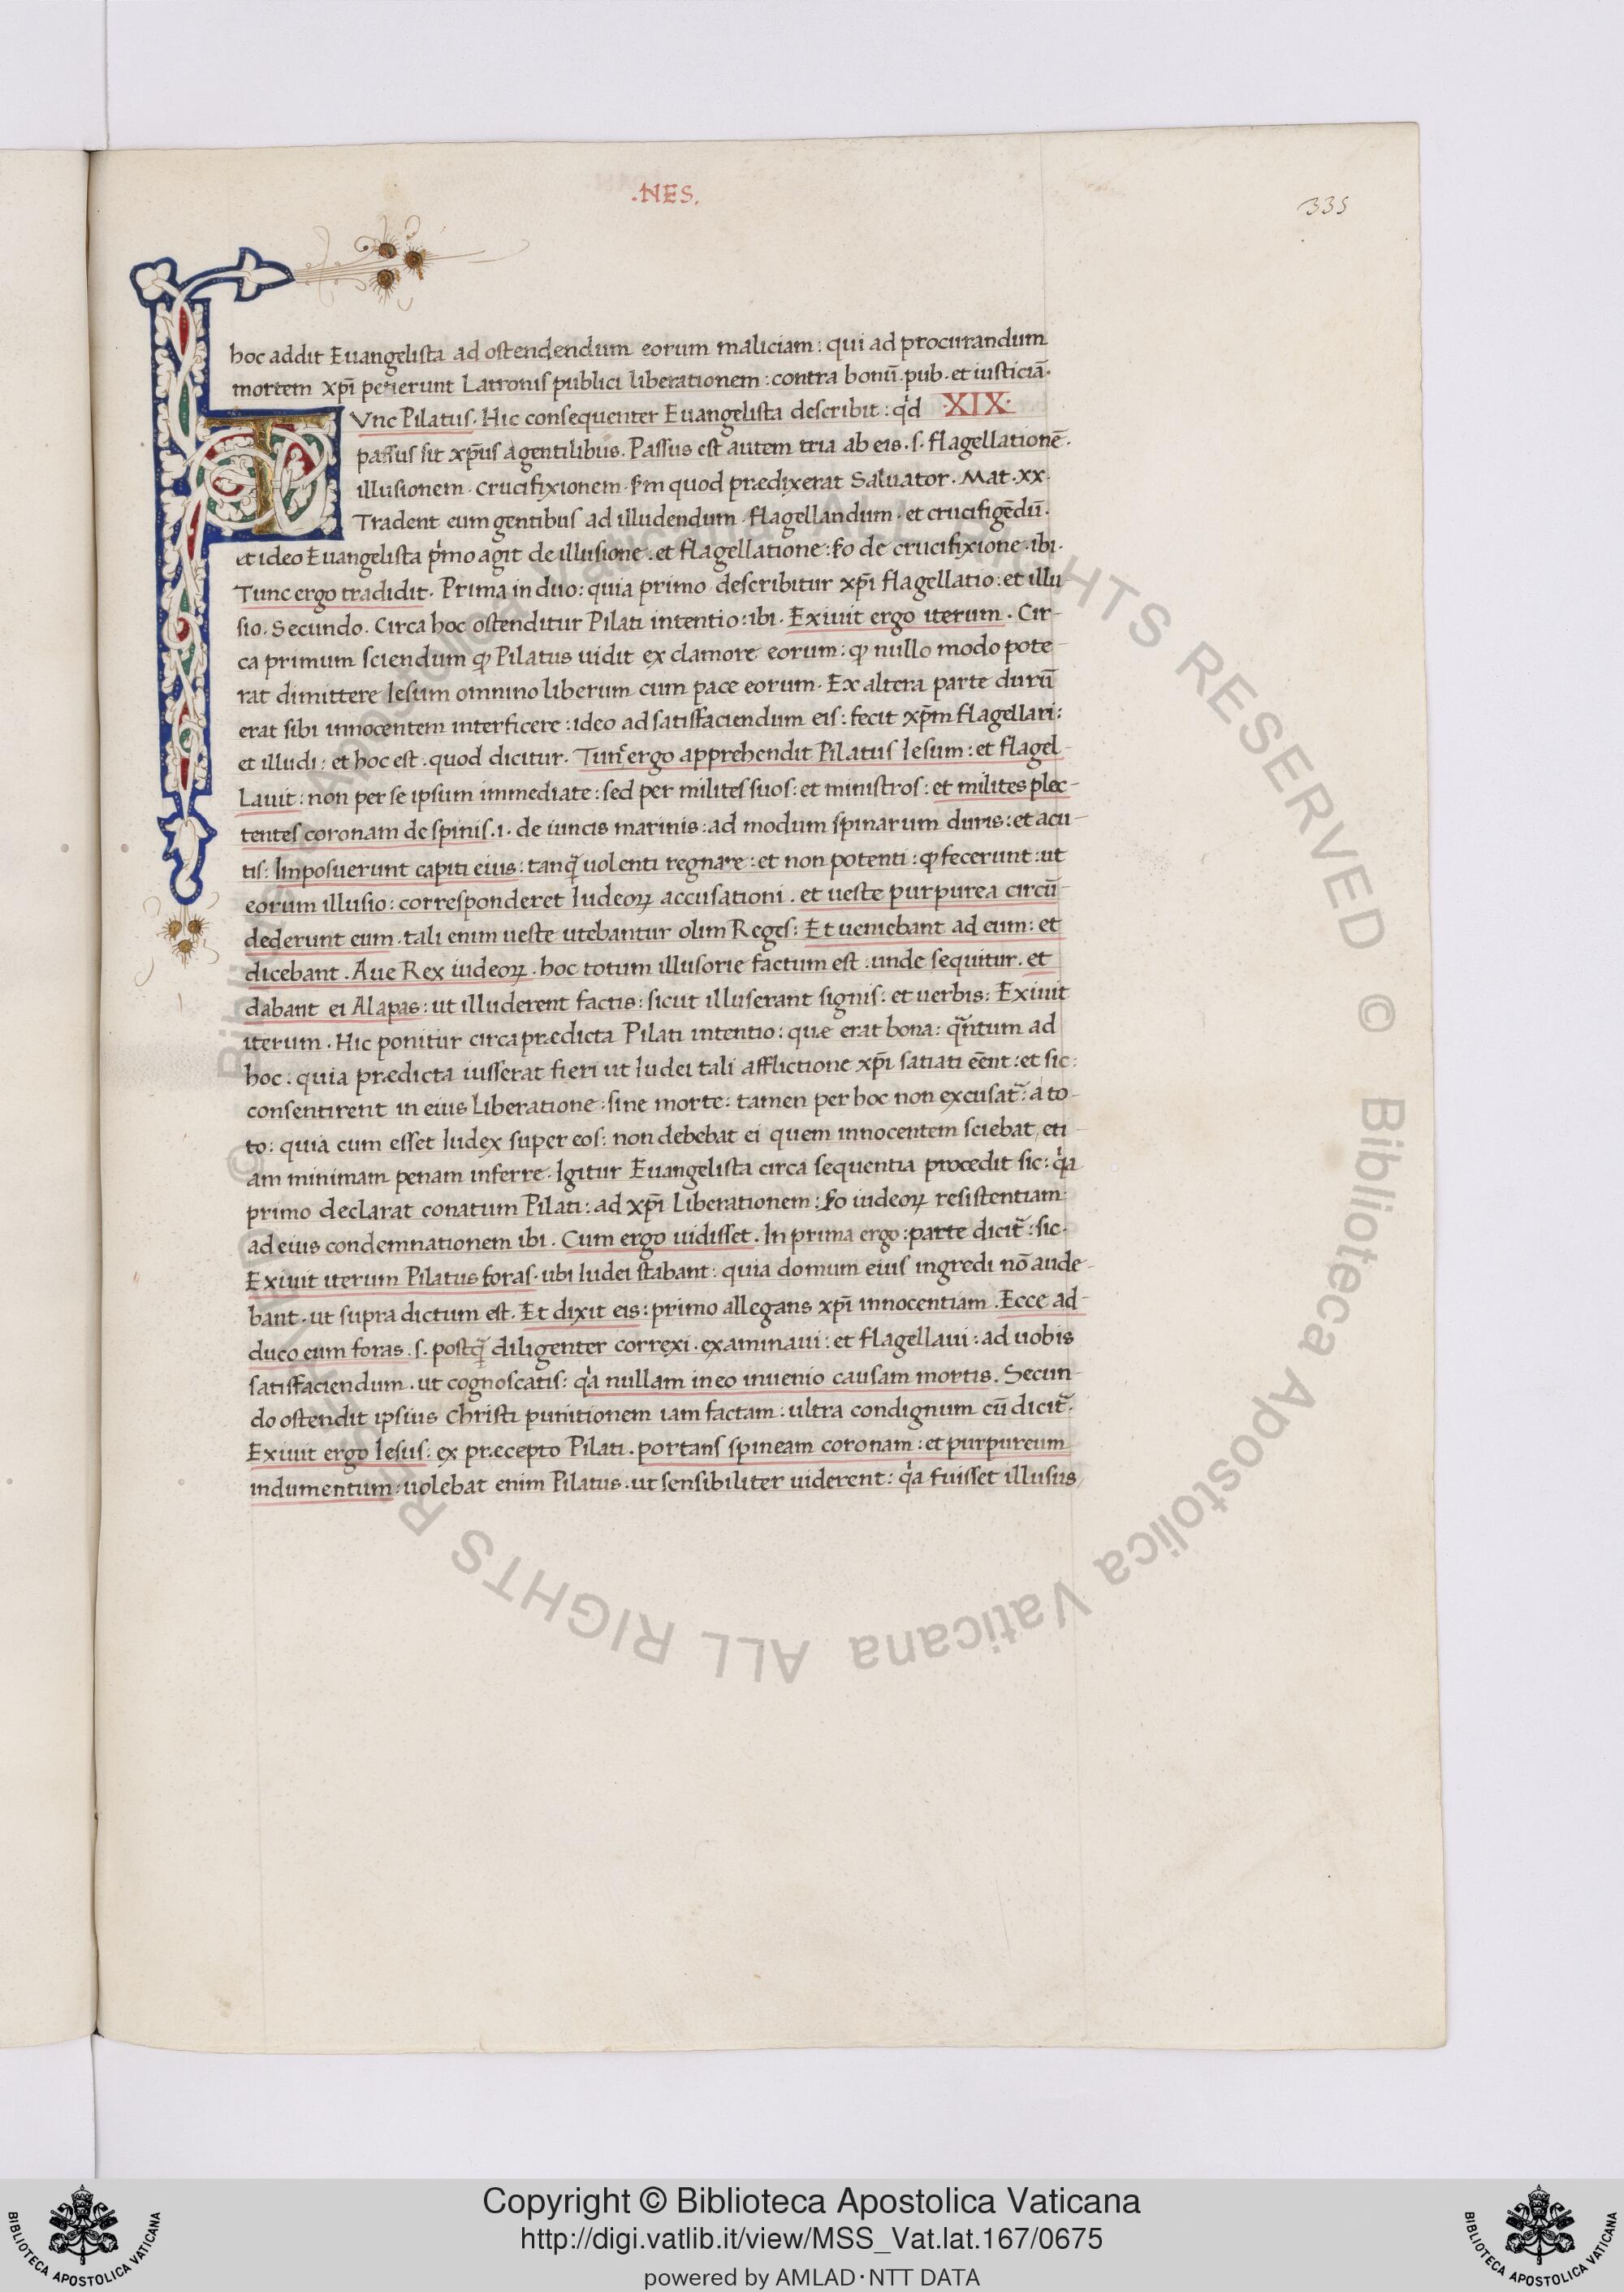 .NES.
335
hoc addit Euangelista ad ostendendum eorum maliciam: qui ad procurandum
mortem xp̄i petierunt Latronis publici liberationem: contra bonū. pub. et iusticiā.
TVnc Pilatus. Hic consequenter Euangelista describit: qd XIX
passus sit xp̄us a gentilibus. Passus est autem tria ab eis. s. flagellationē.
illusionem. crucifixionem. s̄m quod prædixerat Saluator. Mat. xx.
Tradent eum gentibus ad illudendum. flagellandum. et crucifigēdū.
et ideo Euangelista pͥmo agit de illusione. et flagellatione: so de crucifixione. ibi.
Tunc ergo tradidit. Prima in duo: quia primo describitur xp̄i flagellatio: et illu-
sio. Secundo. Circa hoc ostenditur Pilati intentio: ibi. Exiuit ergo iterum. Cir-
ca primum sciendum ꝙ Pilatus uidit ex clamore eorum: ꝙ nullo modo pote-
rat dimittere Iesum omnino liberum cum pace eorum. Ex altera parte durū
erat sibi innocentem interficere: ideo ad satisfaciendum eis: fecit xp̄m flagellari:
et illudi: et hoc est. quod dicitur. Tunc ergo apprehendit Pilatus Iesum: et flagel-
Lauit: non per se ipsum immediate: sed per milites suos: et ministros: et milites plec-
tentes coronam de spinis. i. de iuncis marinis: ad modum spinarum duris: et acu-
tis: Imposuerunt capiti eius: tanq̄ uolenti regnare: et non potenti: ꝙ fecerunt: ut
eorum illusio: corresponderet Iudeoꝝ accusationi. et ueste purpurea circū-
dederunt eum. tali enim ueste utebantur olim Reges: Et ueniebant ad eum: et
dicebant. Aue Rex iudeoꝝ. hoc totum illusorie factum est: unde sequitur. et
dabant ei Alapas: ut illuderent factis: sicut illuserant signis: et uerbis: Exiuit
iterum. Hic ponitur circa prædicta Pilati intentio: quæ erat bona: q̄ntum ad
hoc: quia prædicta iusserat fieri ut Iudei tali afflictione xp̄i satiati eēnt: et sic:
consentirent in eius Liberatione: sine morte: tamen per hoc non excusat̄: a to-
to: quia cum esset Iudex super eos: non debebat ei quem innocentem sciebat, eti-
am minimam penam inferre. Igitur Euangelista circa sequentia procedit sic: qͥa
primo declarat conatum Pilati: ad xp̄i Liberationem: so iudeoꝝ resistentiam:
ad eius condemnationem ibi. Cum ergo uidisset. In prima ergo: parte dicit̄: sic.
Exiuit iterum Pilatus foras. ubi Iudei stabant: quia domum eius ingredi nō aude-
bant. ut supra dictum est. Et dixit eis: primo allegans xp̄i innocentiam. Ecce ad-
duco eum foras. s. postq̄ diligenter correxi. examinaui: et flagellaui: ad uobis
satisfaciendum. ut cognoscatis: qͥa nullam in eo inuenio causam mortis. Secun-
do ostendit ipsius Christi punitionem iam factam: ultra condignum cū dicit̄.
Exiuit ergo Iesus: ex præcepto Pilati. portans spineam coronam: et purpureum
indumentum: uolebat enim Pilatus. ut sensibiliter uiderent: qͥa fuisset illusus,
© Biblioteca Apostolica Vaticana ALL RIGHTS RESERVED © Biblioteca Apostolica Vaticana ALL RIGHTS RESERVED
Copyright © Biblioteca Apostolica Vaticana
http://digi.vatlib.it/view/MSS_Vat.lat.167/0675
powered by AMLAD·NTT DATA
BIBLIOTECA APOSTOLICA VATICANA
BIBLIOTECA APOSTOLICA VATICANA